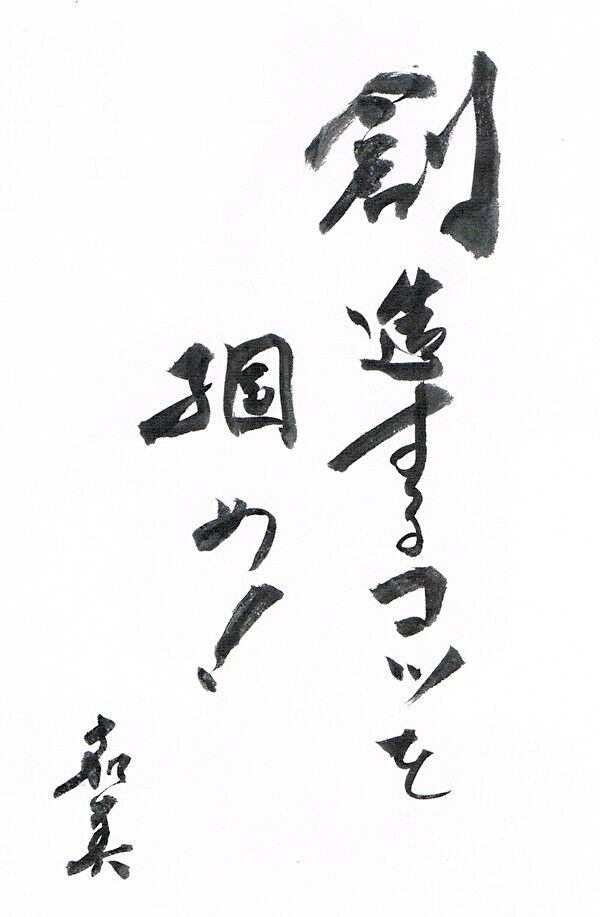 創造するコツを
掴め!
和美